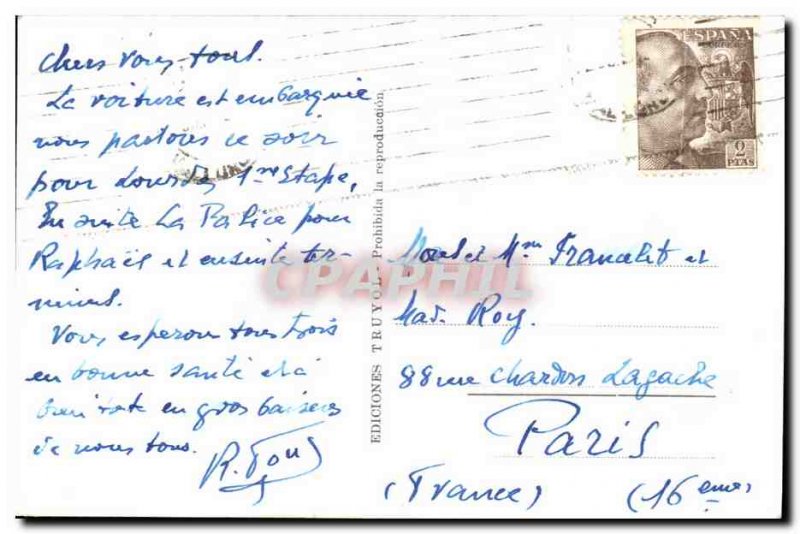 Chers vous tous.
La voiture est embarquée
nous partons ce soir
pour Lourdes, 1ere Etape,
Ensuite La Palice pour
Raphaël et ensuite ter-
minus.
Vous esperons tous trois
en bonne santé et à
bientôt en gros baisers
de nous tous.
R.
EDICIONES TRUYOL - Prohibida la reproducción
CPAPHIL
ESPAÑA
CORREOS
2
PTAS
et Mm et
Mad. Roy.
88 rue Chardon Lagache
PARIS
(France) (16 eme)